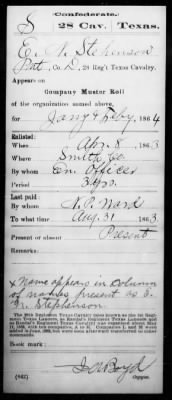 Confederate.
S 28 Cav. Texas.
E. N. Stephenson
Pvt, Co. D, 28 Reg't Texas Cavalry.
Appears on
Company Muster Roll
of the organization named above,
for Jany & Feby, 1864
Enlisted:
When Apr. 8, 1863
Where Smith Co.
By whom En. Officer
Period 3 yrs.
Last paid:
By whom N. P. Ward
To what time Aug. 31, 1863
Present or absent Present
Remarks:
x Name appears in column
of names present as E.
N. Stephenson.
Book mark:
J A Boyd
(642) Copyist.